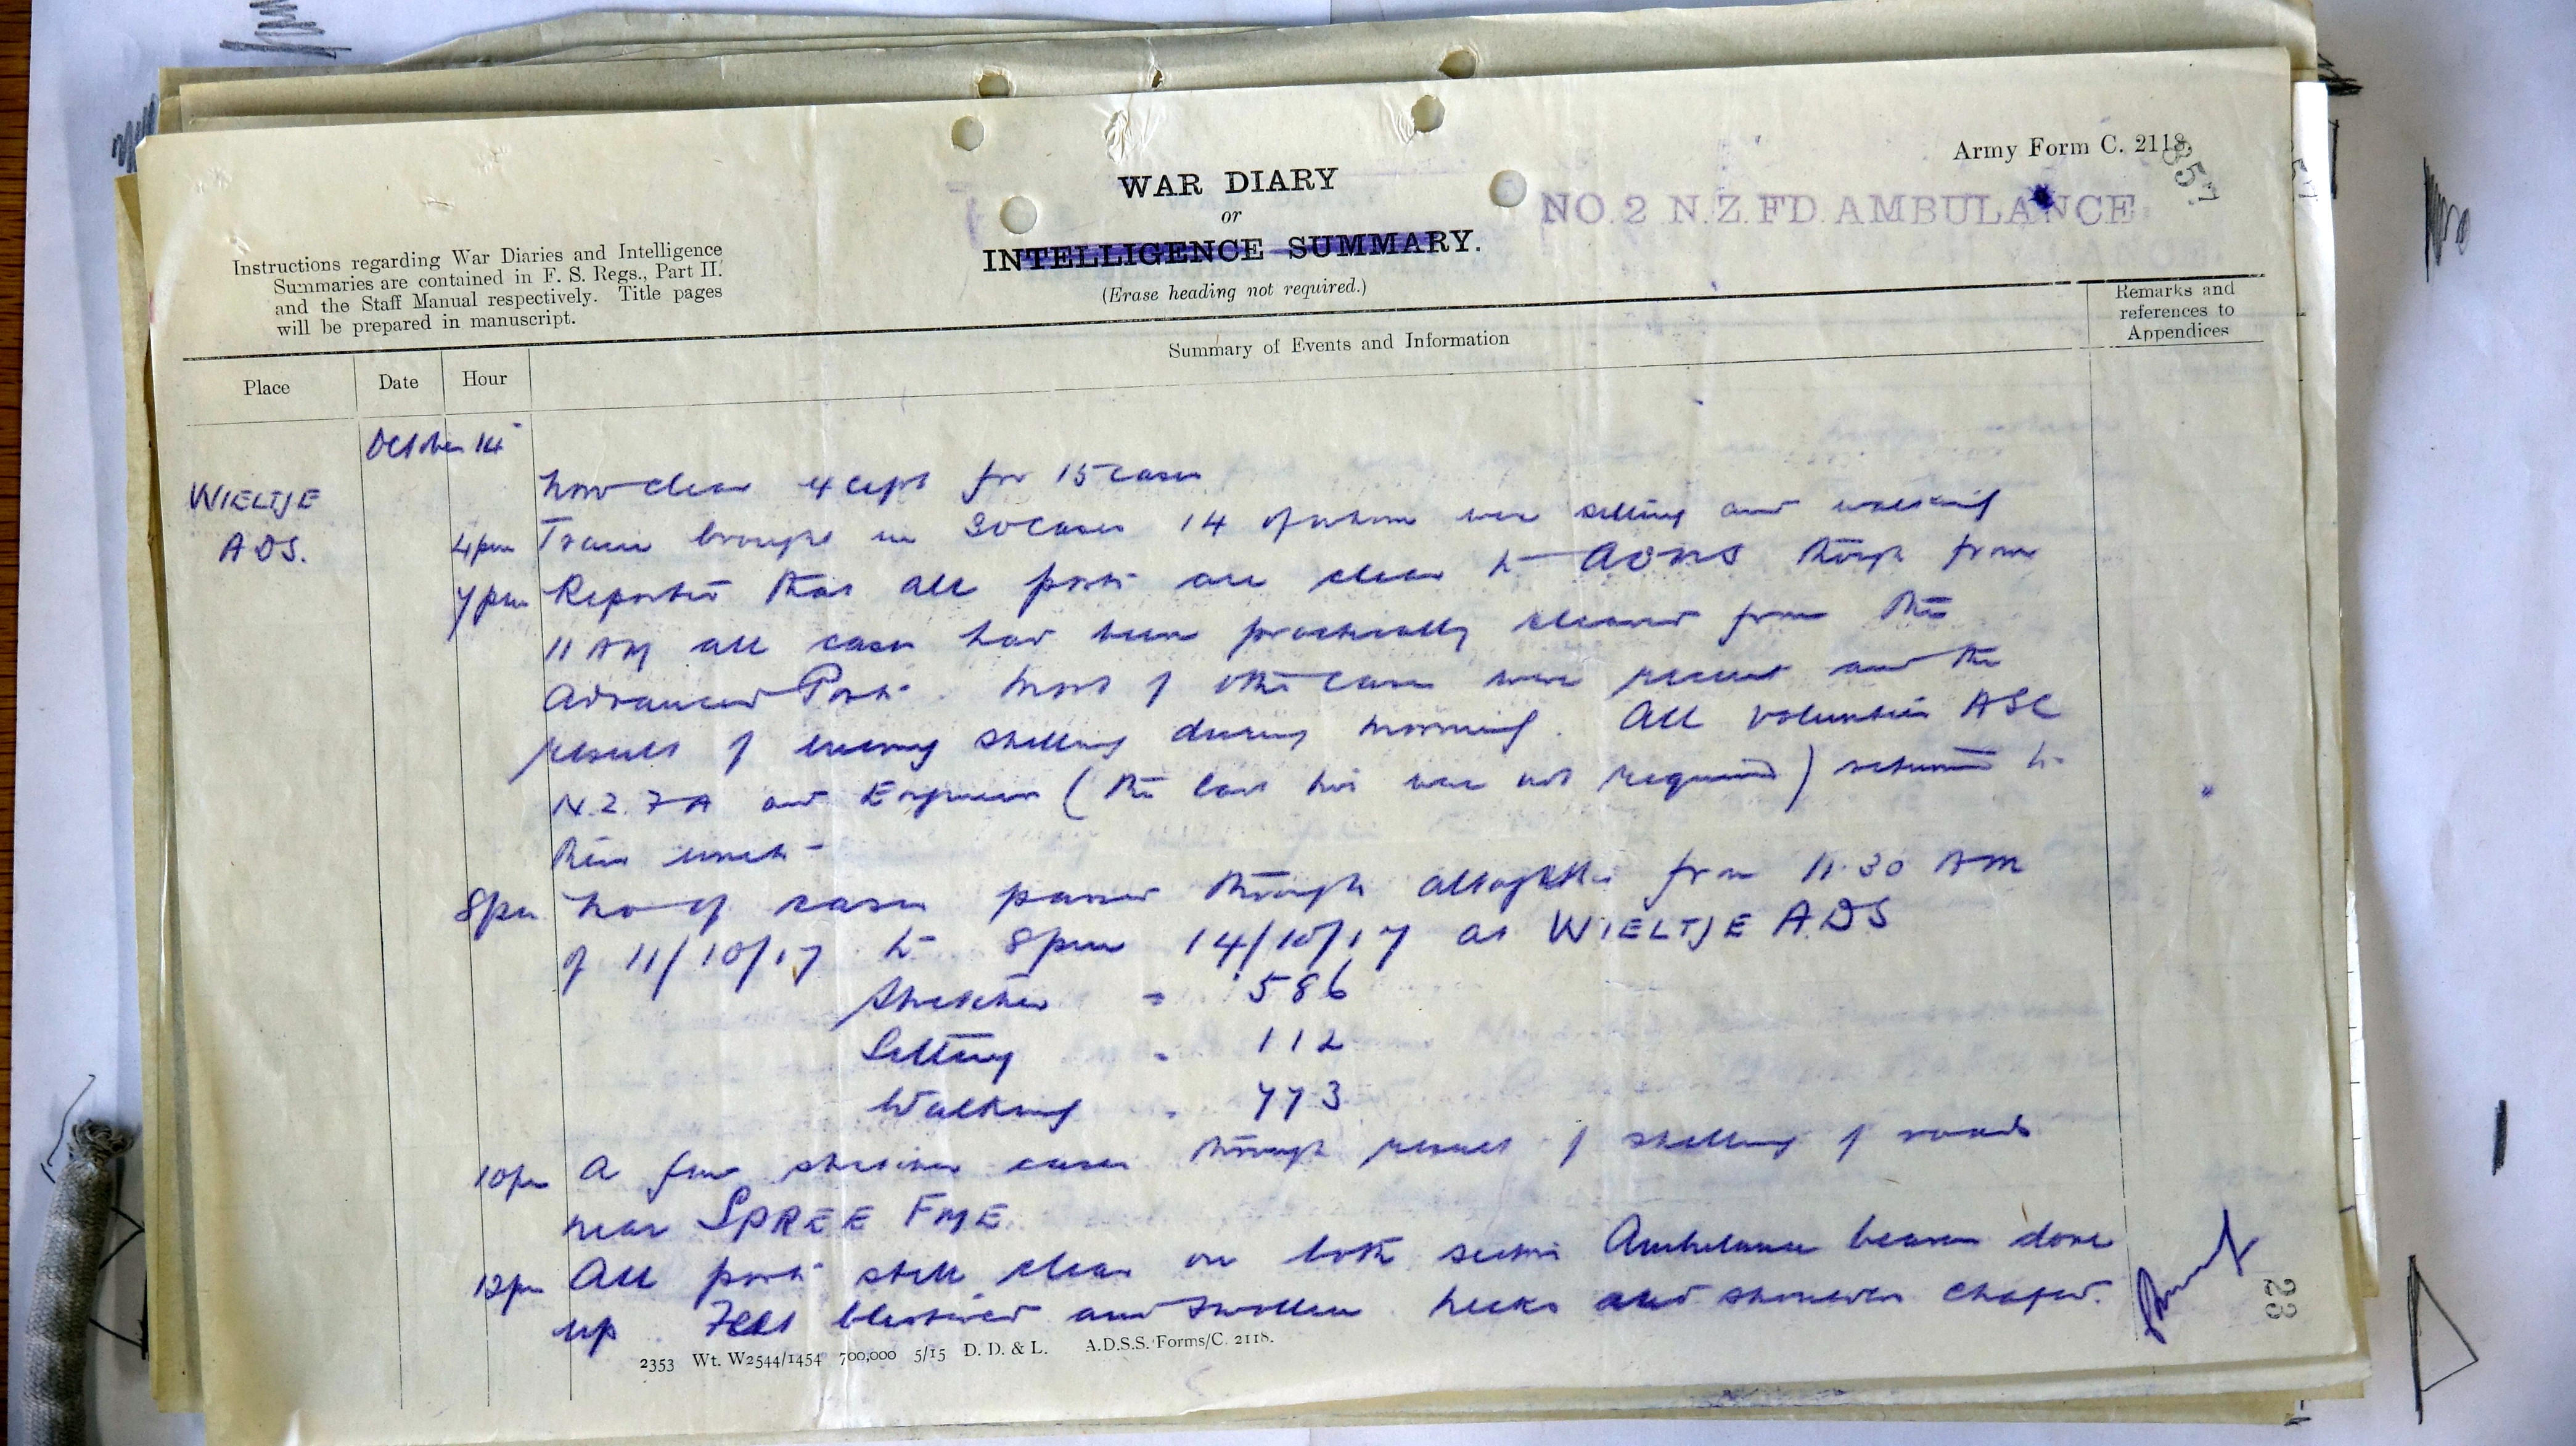 Army Form C. 2118.
357
WAR DIARY
or
INTELLIGENCE SUMMARY.
(Erase heading not required.)
NO. 2 N.Z. FD. AMBULANCE
Instructions regarding War Diaries and Intelligence
Summaries are contained in F. S. Regs., Part II.
and the Staff Manual respectively. Title pages
will be prepared in manuscript.
Remarks and
references to
Appendices
Summary of Events and Information
Place Date Hour
October 14
WIELTJE now clear except for 15 cases
A.D.S. 4pm Train brought in 30 cases 14 of whom were sitting and walking
7pm Reported that all posts are clear to ADMS though from
11 AM all cases had been practically cleared from the
Advanced Posts. Most of the cases were recent and the
result of enemy shelling during morning. All volunteer ASC
N.Z.F.A and Engineers (the last two were not required) returned to
their units -
8pm No of cases passed through altogether from 11.30 AM
of 11/10/17 to 8pm 14/10/17 at WIELTJE A.D.S
Stretcher - 586
Sitting - 112
Walking - 773
10pm A few stretcher cases through result of shelling of roads
near SPREE FME
12pm All posts still clear on both sectors Ambulance bearers done
up. Feet blistered and swollen necks and shoulders chafed.
2353 Wt. W2544/1454 700,000 5/15 D. D. & L. A.D.S.S. Forms/C. 2118.
23